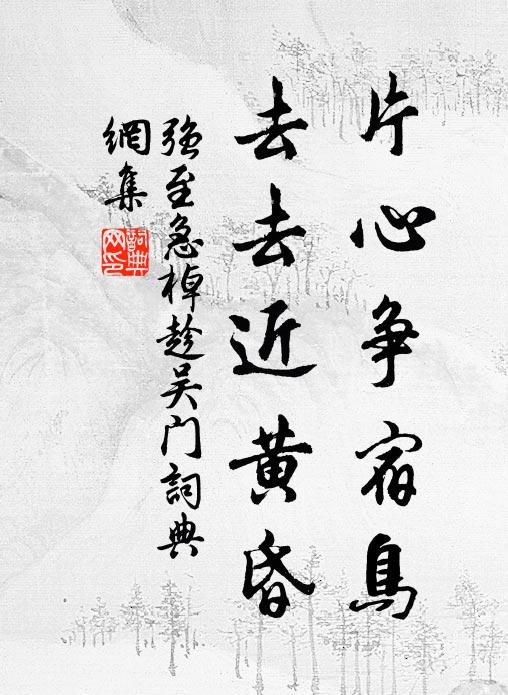 片心争宿鳥
去去近黄昏
强至急棹趁吴门詞典
網集
詞典網印